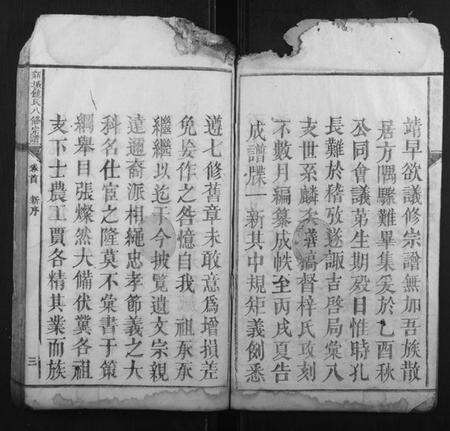 靖早欲議修宗譜無加吾族散
居方隅驟難畢集爰於乙酉秋
公同會議第生期歿日惟時孔
長難於稽攷遂諏吉啓局彙八
支世系麟 繕稿督梓氏攻刻
不數月編纂成帙至丙戌夏告
成譜牒一新其中規矩義例悉
遵七修舊章未敢意爲增損差
免妄作之咎憶自我 祖 
繼繼以迄于今披覽遺文宗親
達邇裔派相繩忠孝節義之大
科名仕宦之隆莫不彙書于策
綱舉目張燦然大備伏冀各祖
支下士農工賈各精其業而族
氏八修宗譜
卷首
新序
三